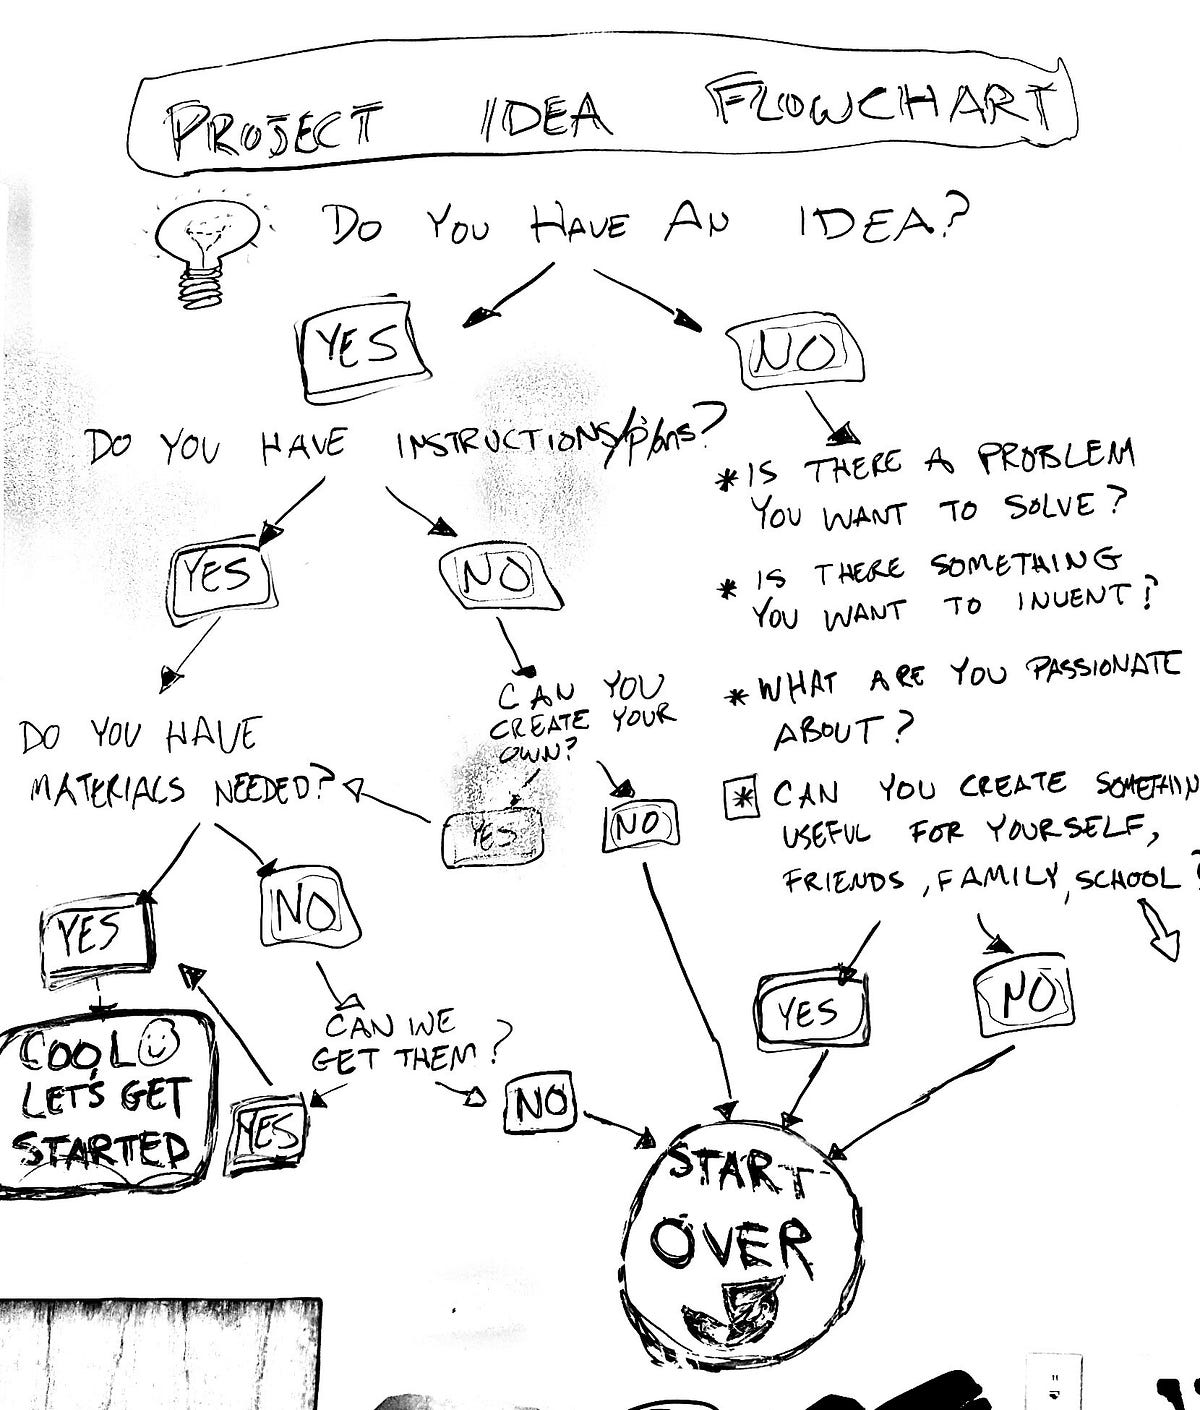 PROJECT IDEA FLOWCHART
DO YOU HAVE AN IDEA?
YES
NO
DO YOU HAVE INSTRUCTIONS/plans?
YES
NO
* IS THERE A PROBLEM
YOU WANT TO SOLVE?
* IS THERE SOMETHING
YOU WANT TO INVENT?
* WHAT ARE YOU PASSIONATE
ABOUT?
* CAN YOU CREATE SOMETHIN
USEFUL FOR YOURSELF,
FRIENDS, FAMILY, SCHOOL?
CAN YOU
CREATE YOUR
OWN?
DO YOU HAVE
MATERIALS NEEDED?
YES
NO
YES
NO
YES
NO
COOL
LET'S GET
STARTED
CAN WE
GET THEM?
YES
NO
START
OVER